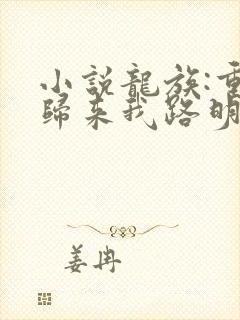 小說龍族:重
歸来我路明
姜冉